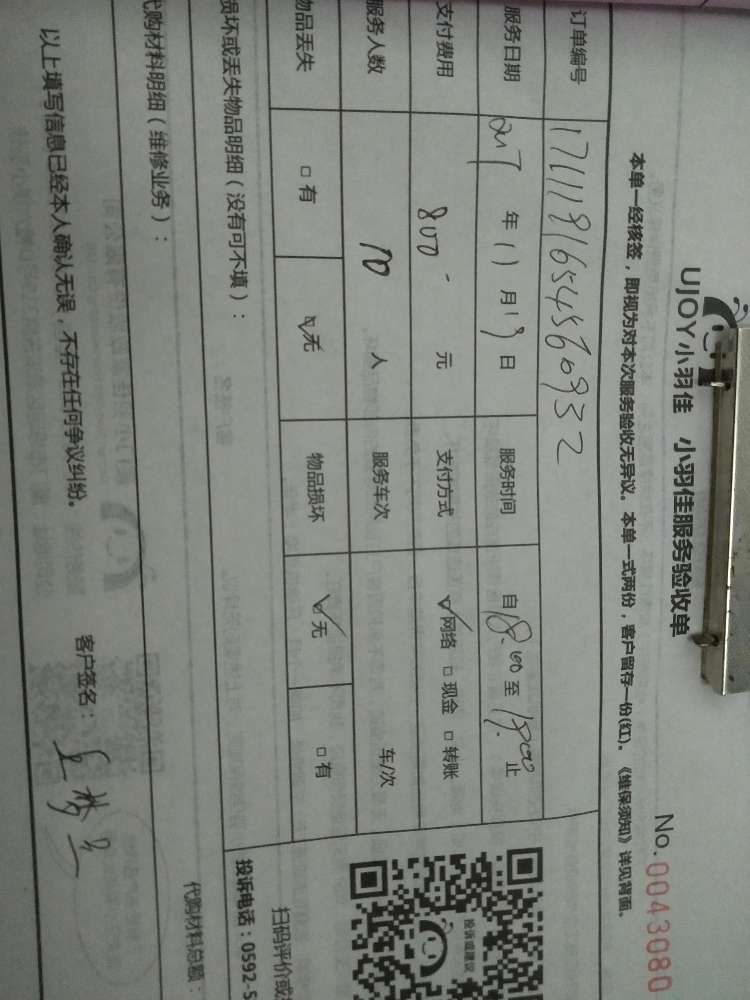 UJOY小羽佳 小羽佳服务验收单
No. 0043080
本单一经核签，即视为对本次服务验收无异议。本单一式两份，客户留存一份(红)。《维保须知》详见背面。
订单编号 17111816545560932
服务日期 2017 年 11 月 19 日 服务时间 自 18:00 至 19:00 止
支付费用 800- 元 支付方式 ☑网络 □现金 □转账
服务人数 10 人 服务车次 车/次
物品丢失 □有 ☑无 物品损坏 ☑无 □有
损坏或丢失物品明细（没有可不填）：
代购材料明细（维修业务）：
代购材料总额：
以上填写信息已经本人确认无误，不存在任何争议纠纷。
客户签名：
投诉或建议
扫码评价或
投诉电话：0592-5